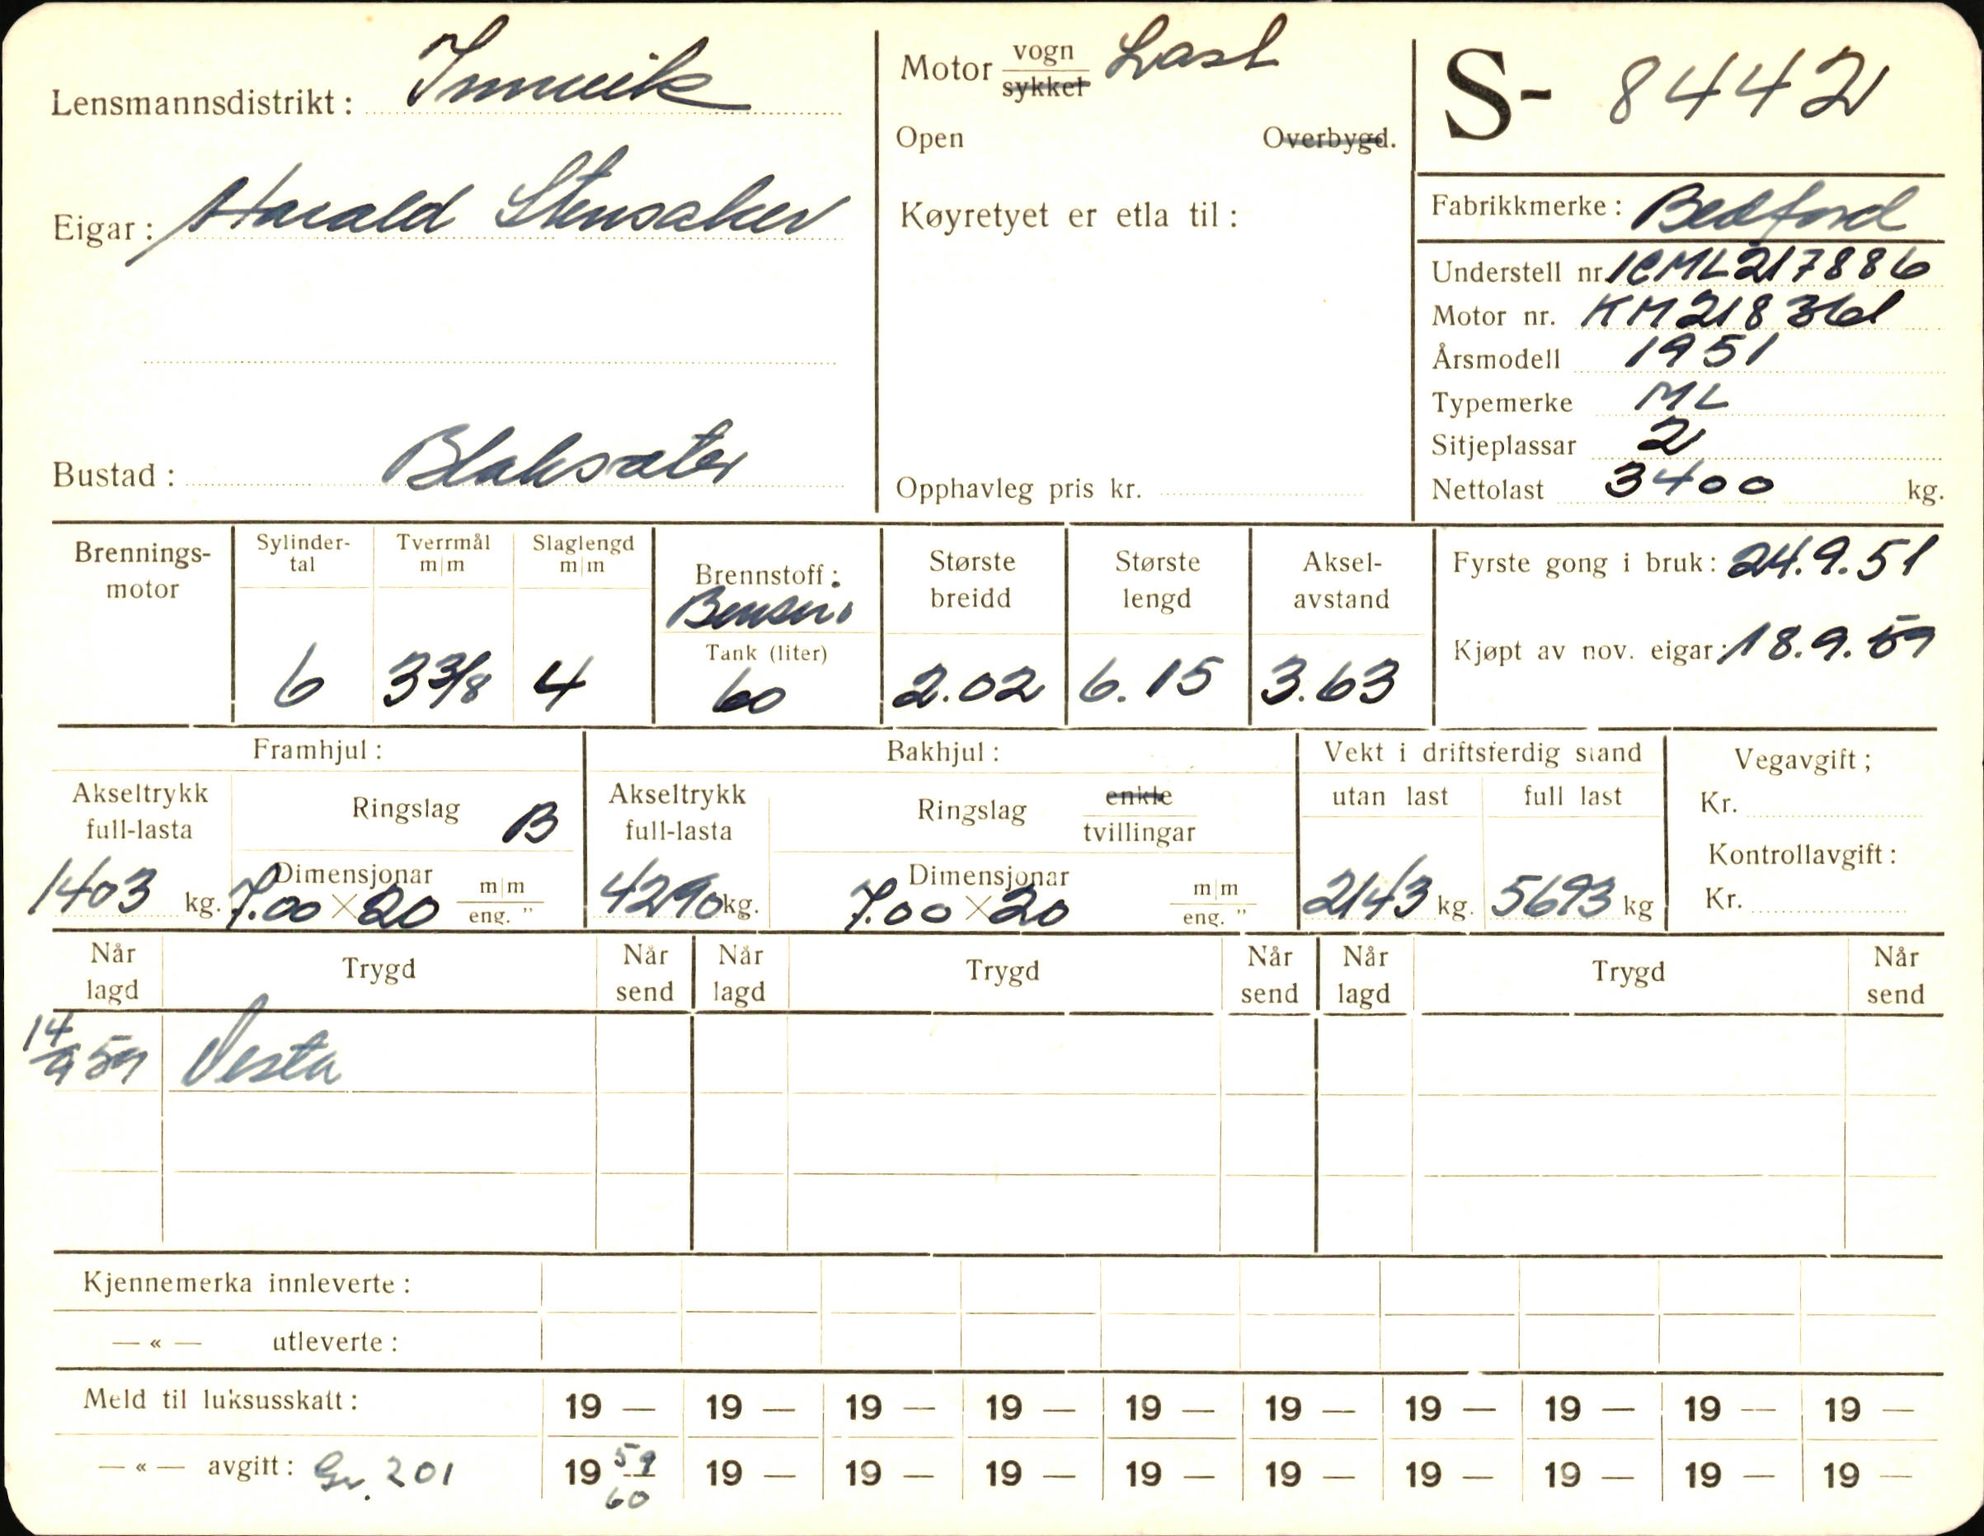 Lensmannsdistrikt: Innvik
Eigar: Harald Stensaker
Bustad: Blaksæter
Motor vogn Last
sykkel
Open Overbygd.
Køyretyet er etla til:
Opphavleg pris kr.
S- 8442
Fabrikkmerke: Bedford
Understell nr.
Motor nr.
Årsmodell 1951
Typemerke ML
Sitjeplassar 2
Nettolast 3400 kg.
Brennings-
motor
Sylinder-
tal
6
Tverrmål
m|m
3 3/8
Slaglengd
m|m
4
Brennstoff:
Bensin
Tank (liter)
60
Største
breidd
2.02
Største
lengd
6.15
Aksel-
avstand
3.63
Fyrste gong i bruk: 24.9.51
Kjøpt av nov. eigar: 18.9.59
Framhjul:
Akseltrykk
full-lasta
1403 kg.
Ringslag B
Dimensjonar
7.00 × 20 m|m
eng. "
Bakhjul:
Akseltrykk
full-lasta
4290 kg.
Ringslag enkle
tvillingar
Dimensjonar
7.00 × 20 m|m
eng. "
Vekt i driftsferdig stand
utan last full last
2143 kg. 5693 kg
Vegavgift;
Kr.
Kontrollavgift:
Kr.
Når
lagd Trygd Når
send Når
lagd Trygd Når
send Når
lagd Trygd Når
send
14/9 59 Vesta
Kjennemerka innleverte:
— « — utleverte:
Meld til luksusskatt: 19 — 19 — 19 — 19 — 19 — 19 — 19 — 19 — 19 — 19 —
— « — avgift: Gr. 201 19 59 19 — 19 — 19 — 19 — 19 — 19 — 19 — 19 — 19 —
60